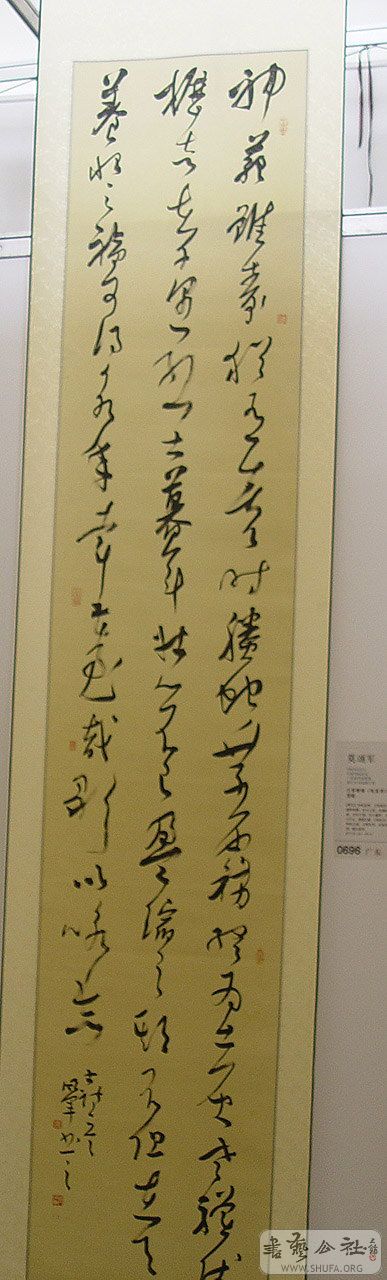 神龜雖壽猶有竟時騰蛇乘霧終為土灰老驥伏
櫪志在千里烈士暮年壯心不已盈縮之期不但在天
養怡之福可得永年幸甚至哉歌以詠志
0696 广东
書藝公社
WWW.SHUFA.ORG